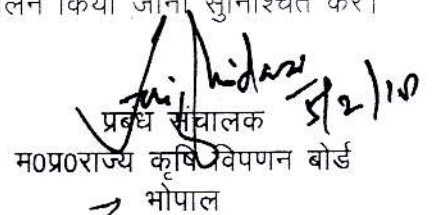 लन किया जाना सुनिश्चित करें।
5/2/10
प्रबंध संचालक
म०प्र०राज्य कृषि विपणन बोर्ड
भोपाल